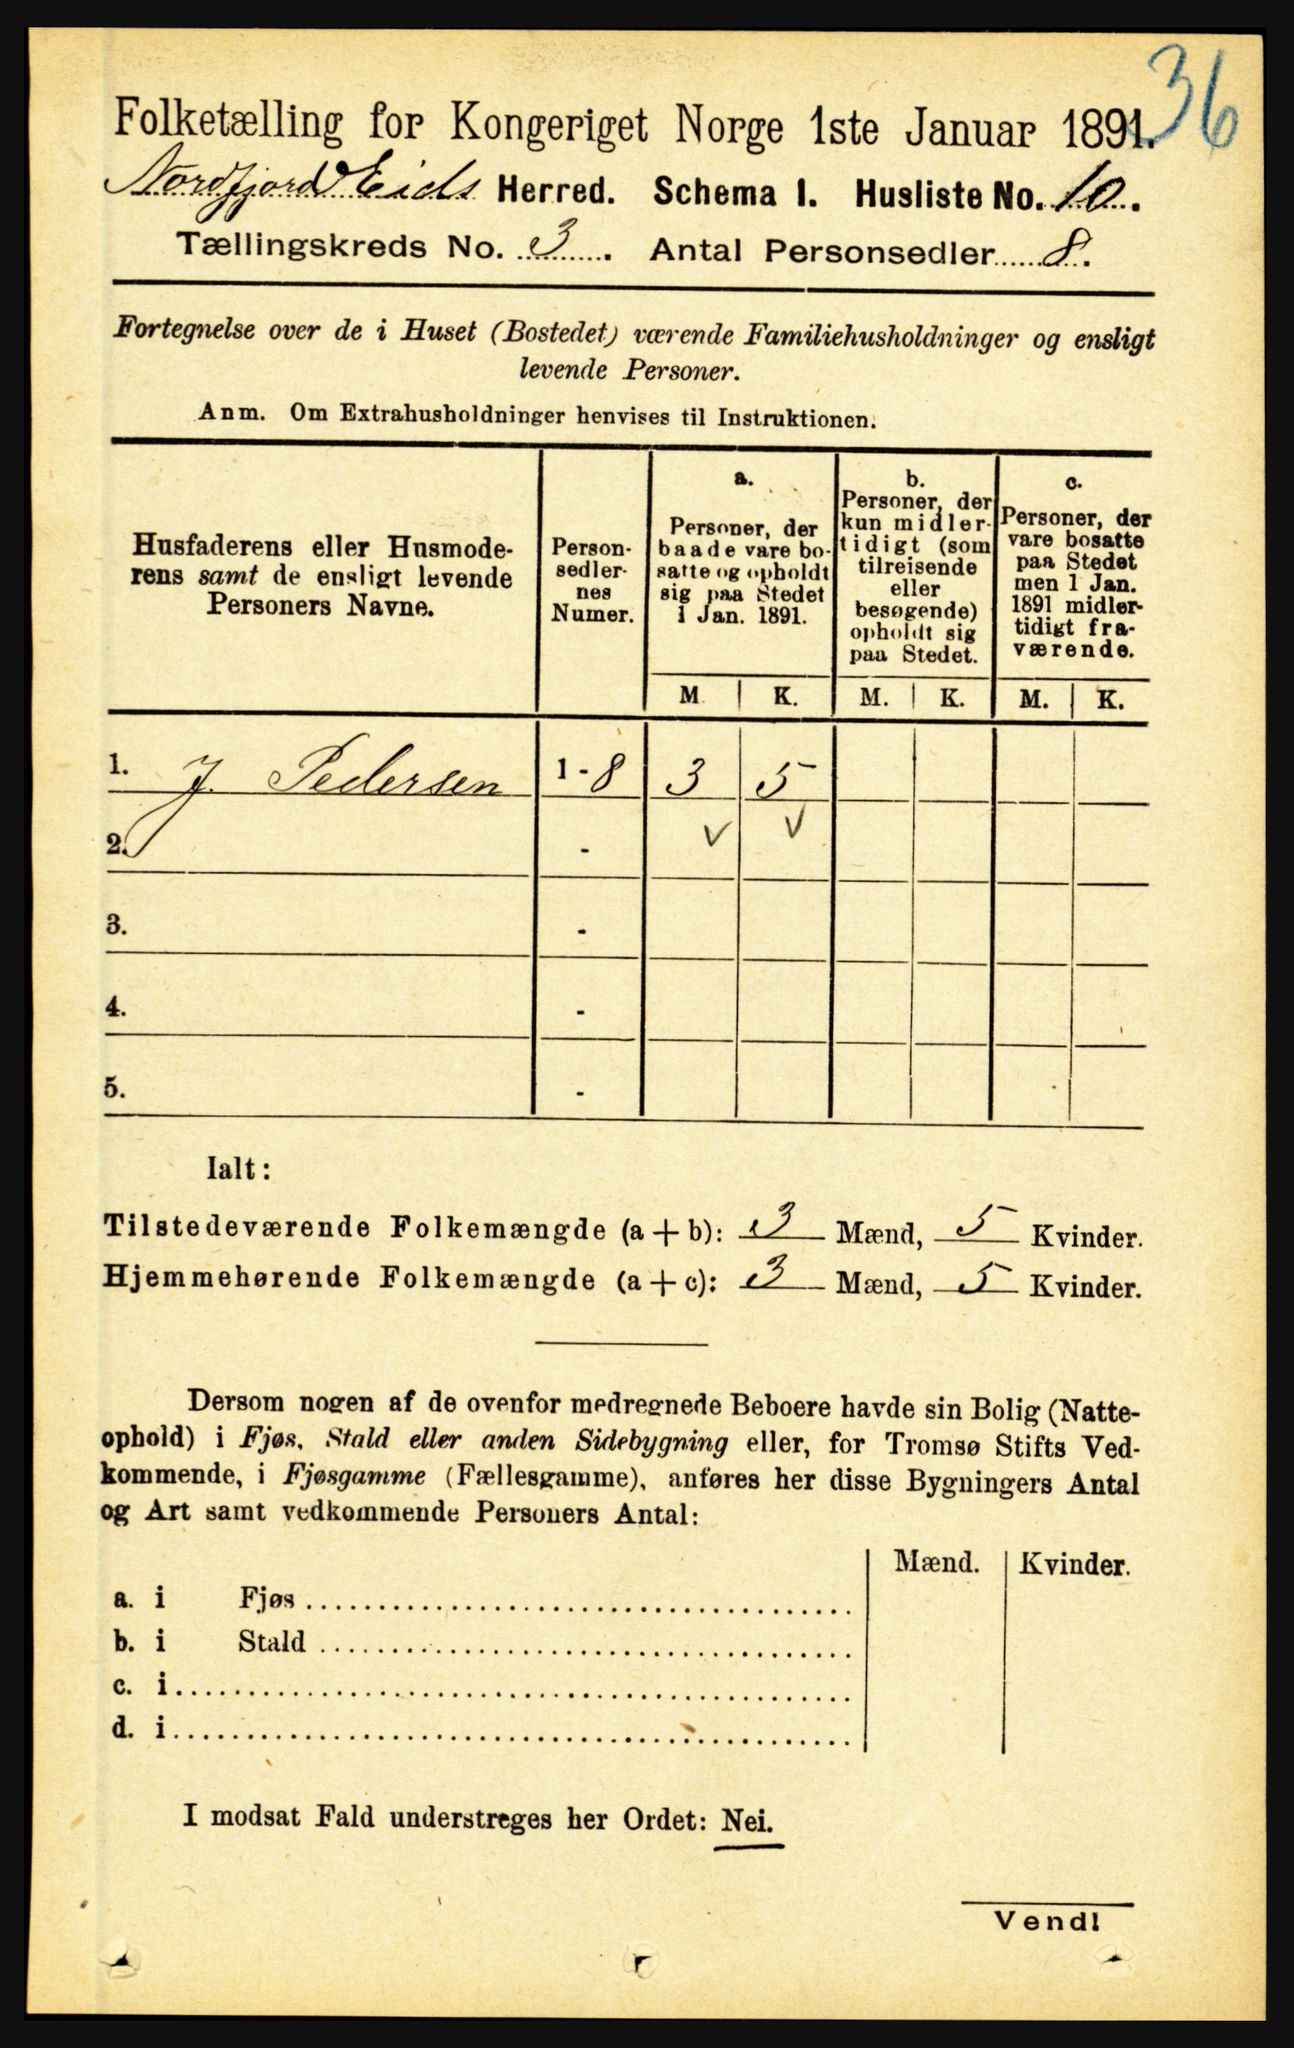 36
Folketælling for Kongeriget Norge 1ste Januar 1891.
Nordfjord Eids Herred. Schema 1. Husliste No. 10.
Tællingskreds No. 3. Antal Personsedler 8.
Fortegnelse over de i Huset (Bostedet) værende Familiehusholdninger og ensligt
levende Personer.
Anm. Om Extrahusholdninger henvises til Instruktionen.
Husfaderens eller Husmode-
rens samt de ensligt levende
Personers Navne.
Person-
sedler-
nes
Numer.
a.
Personer, der
baade vare bo-
satte og opholdt
sig paa Stedet
1 Jan. 1891.
b.
Personer, der
kun midler-
tidigt (som
tilreisende
eller
besøgende)
opholdt sig
paa Stedet.
c.
Personer, der
vare bosatte
paa Stedet
men 1 Jan.
1891 midler-
tidigt fra-
værende.
M. K. M. K. M. K.
1. J. Pedersen 1 - 8 3 5
2. - v v
3. -
4. -
5. -
Ialt:
Tilstedeværende Folkemængde (a + b): 3 Mænd, 5 Kvinder.
Hjemmehørende Folkemængde (a + c): 3 Mænd, 5 Kvinder.
Dersom nogen af de ovenfor medregnede Beboere havde sin Bolig (Natte-
ophold) i Fjøs, Stald eller anden Sidebygning eller, for Tromsø Stifts Ved-
kommende, i Fjøsgamme (Fællesgamme), anføres her disse Bygningers Antal
og Art samt vedkommende Personers Antal:
Mænd. Kvinder.
a. i Fjøs
b. i Stald
c. i
d. i
I modsat Fald understreges her Ordet: Nei.
Vend!